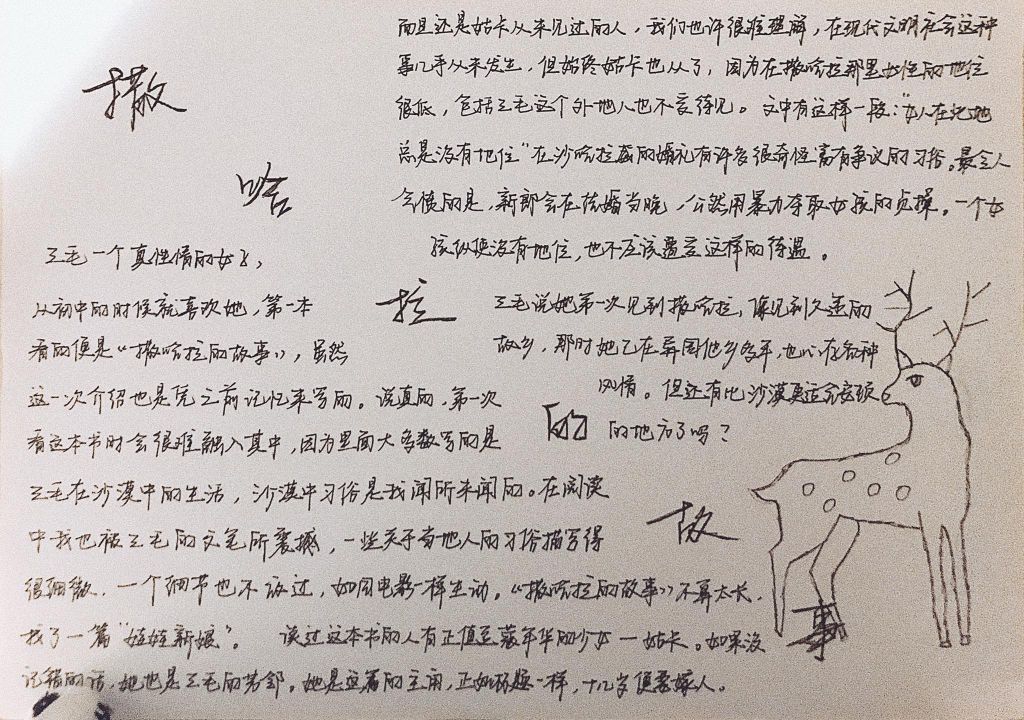 撒
哈
拉
的
故
事
三毛一个真性情的女子，
从初中的时候就喜欢她，第一本
看的便是《撒哈拉的故事》，虽然
这一次介绍也是凭之前记忆来写的。说真的，第一次
看这本书时会很难融入其中，因为里面大多数写的是
三毛在沙漠中的生活，沙漠中习俗是我闻所未闻的。在阅读
中我也被三毛的文笔所震撼，一些关于当地人的习俗描写得
很细微，一个细节也不放过，如同电影一样生动。《撒哈拉的故事》不算太长，
找了一篇"娃娃新娘"。 读过这本书的人有正值豆蔻年华的少女一姑卡。如果没
记错的话，她也是三毛的芳邻。她是这篇的主角，正如标题一样，十几岁便要嫁人。
而且还是姑卡从来见过的人，我们也许很难理解，在现代文明社会这种
事几乎从未发生，但始终姑卡也从了，因为在撒哈拉那里女性的地位
很低，包括三毛这个外地人也不受待见。文中有这样一段："女人在此地
总是没有地位"在沙哈拉威的婚礼有许多很奇怪富有争议的习俗。最令人
气愤的是，新郎会在结婚当晚，公然用暴力夺取女孩的贞操。一个女
孩纵使没有地位，也不应该遭受这样的待遇。
三毛说她第一次见到撒哈拉，像见到久违的
故乡，那时她已在异国他乡多年，也心在各种
风情。但还有比沙漠更适合流浪
的地方了吗？